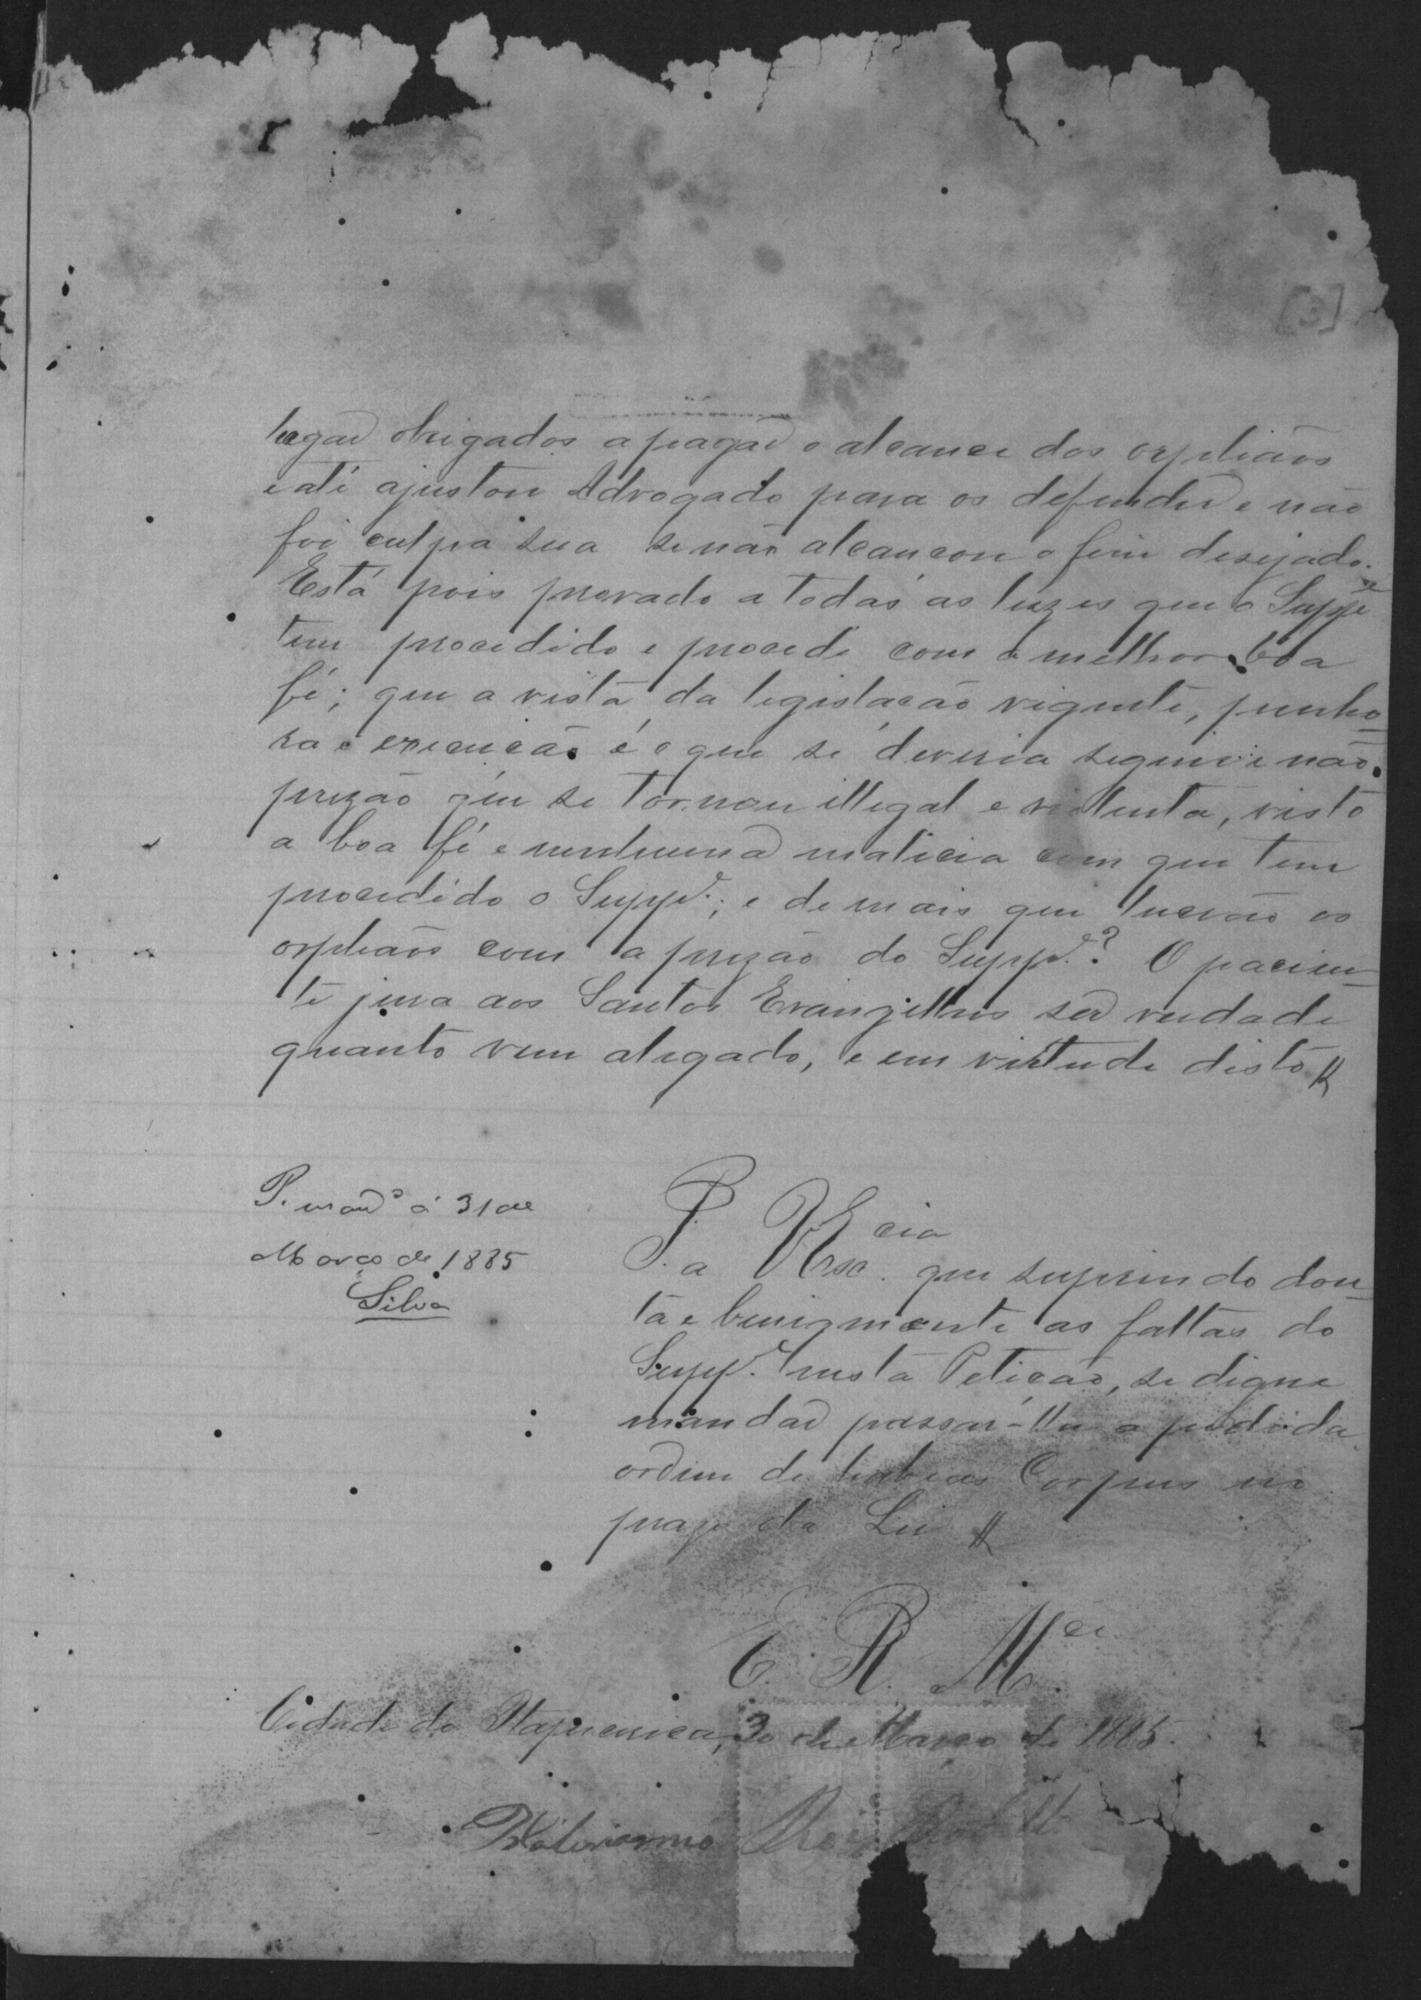 [3]
legar obrigados a pagar o alcance dos orphãos
e até ajustou Advogado para os defender e não
foi culpa sua se não alcançou o fim desejado.
Está pois provado a todas as luzes que o Suppe
tem procedido e procede com a melhor boa
fé; que a vista da legislação vigente, penho-
ra e execução é o que se deveria seguir e não
prizão que se tornou illegal e violenta, visto
a boa fé e nenhuma malicia com que tem
procedido o Suppe.; e de mais que lucrão os
orphãos com a prizão do Suppe.? O pacien-
te jura aos Santos Evangelhos ser verdade
quanto vem alegado, e em virtude disto
P. mando á 31 de
Março de 1885
Silva
P. a VExcia. que suprindo dou-
ta e benignamente as faltas do
Suppe. nesta Petição, se digne
mandar passar-lhe a pedida
ordem de habeas Corpus no
prazo da Lei
E. R. Mce.
Cidade do Itapicurica, 30 de Março de 1885.